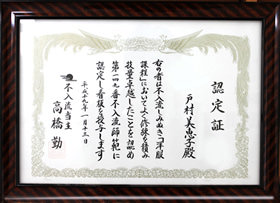 認定証
戸村美恵子殿
右の者は不入流しみぬき「洋服
課程」においてよく修練を積み
技量卓越したことを認め
第一四九番不入流師範に
認定し看板を授与します
平成二十九年一月十三日
不入流当主
高橋勤